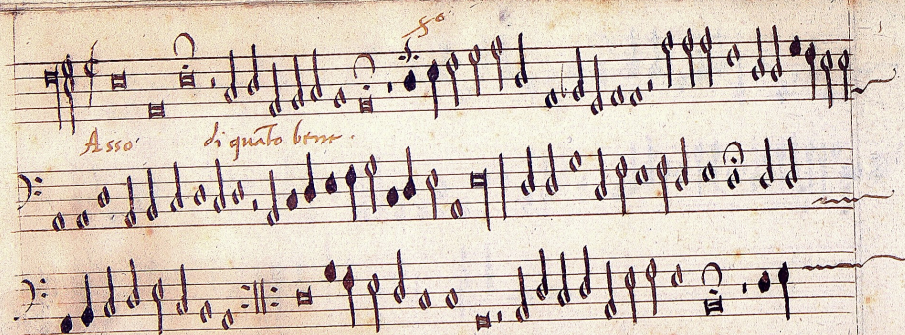 Asso di quāto bene.